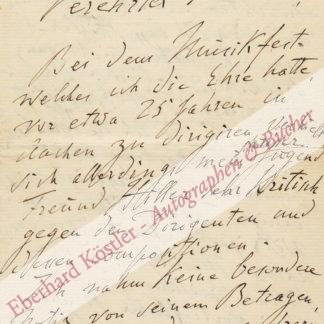 Verehrter
Bei dem Musikfest
welches ich die Ehre hatte,
vor etwa 25 Jahren in
Aachen zu dirigiren
sich allerdings mein Jugend
Freund Hiller sehr kritisch
gegen den Dirigenten und
dessen Compositionen.
Ich nahm keine besondere
Notiz von seinem Betragen,
Eberhard Köstler - Autographen & Bücher